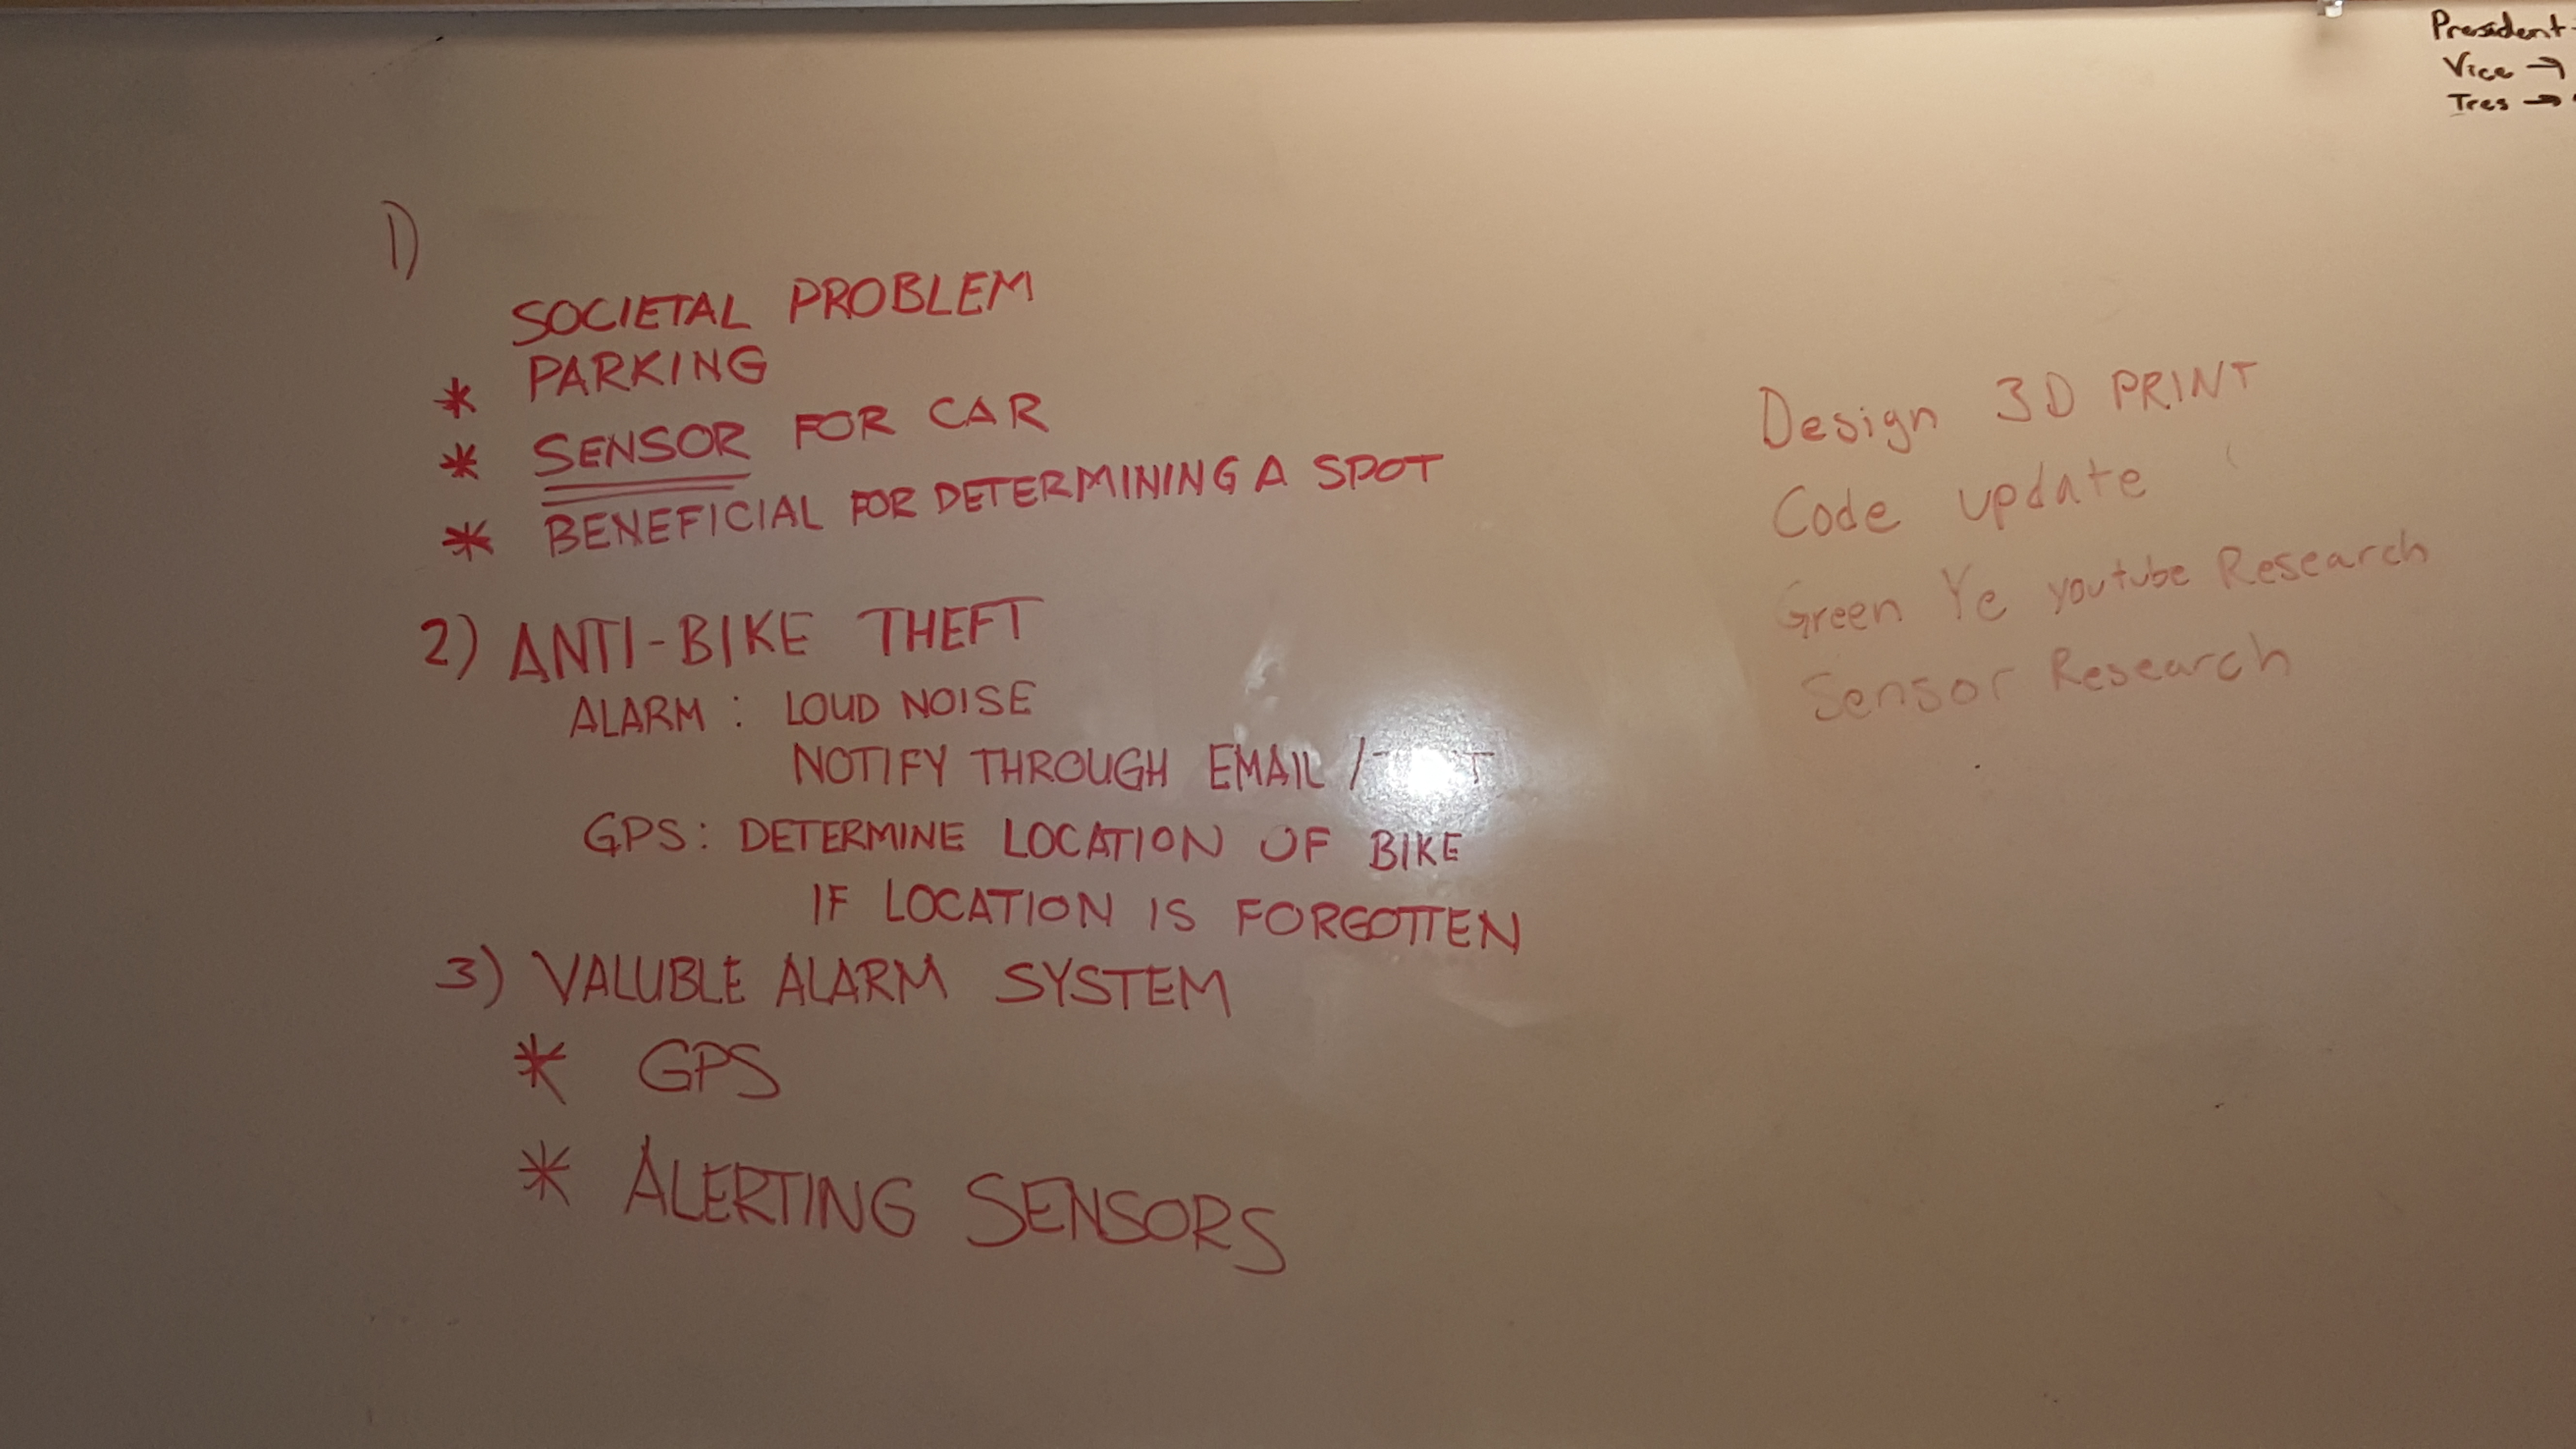 1)
SOCIETAL PROBLEM
* PARKING
* SENSOR FOR CAR
* BENEFICIAL FOR DETERMINING A SPOT
2) ANTI-BIKE THEFT
ALARM : LOUD NOISE
NOTIFY THROUGH EMAIL /
GPS: DETERMINE LOCATION OF BIKE
IF LOCATION IS FORGOTTEN
3) VALUBLE ALARM SYSTEM
* GPS
* ALERTING SENSORS
Design 3D PRINT
Code update
Green Ye youtube Research
Sensor Research
President
Vice →
Tres →